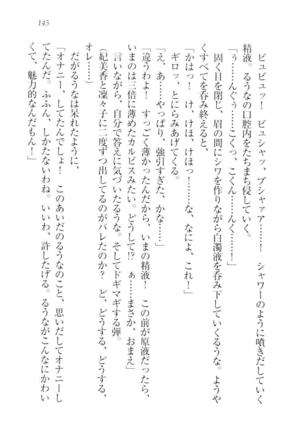 145
ビュビュッ! ビュシャッ、ブシャァア……! シャワーのように噴きだしていく
精液。るうなの口腔内をたちまち侵していく。
「ぅ……んぐぅ……こくっ、こくん……んく……!」
固く目を閉じ、眉の間にシワを作りながら白濁液を呑み下していくるうな。ようや
くすべてを呑み終えると、
「かはっ! け、けほ、けほっ……な、なによ、これ!」
ギロッ、とにらみあげてくる。
「え、あ……やっぱり、強引すぎた、かな……」
「違うわよ! すっごく薄かったんだから、いまの精液! この前が原液だったら、
いまのは二倍に薄めたカルピスみたい。どうして!? ぁ……まさか、おまえ」
言いながら、自分で答えに気づいたるうな。そしてドギマギする弾。
(妃美香と凜々子に二度ずつ出してるのがバレたのか? ど、どうする、どうする、
オレ……)
だがるうなは呆れたように、
「オナニー、してたんでしょ! このあいだのるうなのこと、思いだしてオナニーし
てたんだ。ふふん、しかたないわね。いいわ、許したげる。るうながこんなにかわい
くて、魅力的なんだもん!」